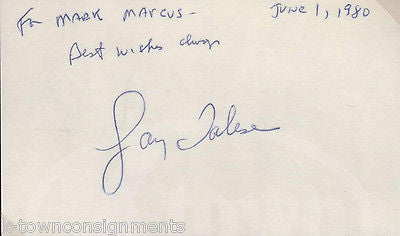 For MARK MARCUS – JUNE 1, 1980
Best wishes always
Gay Talese
k-townconsignments